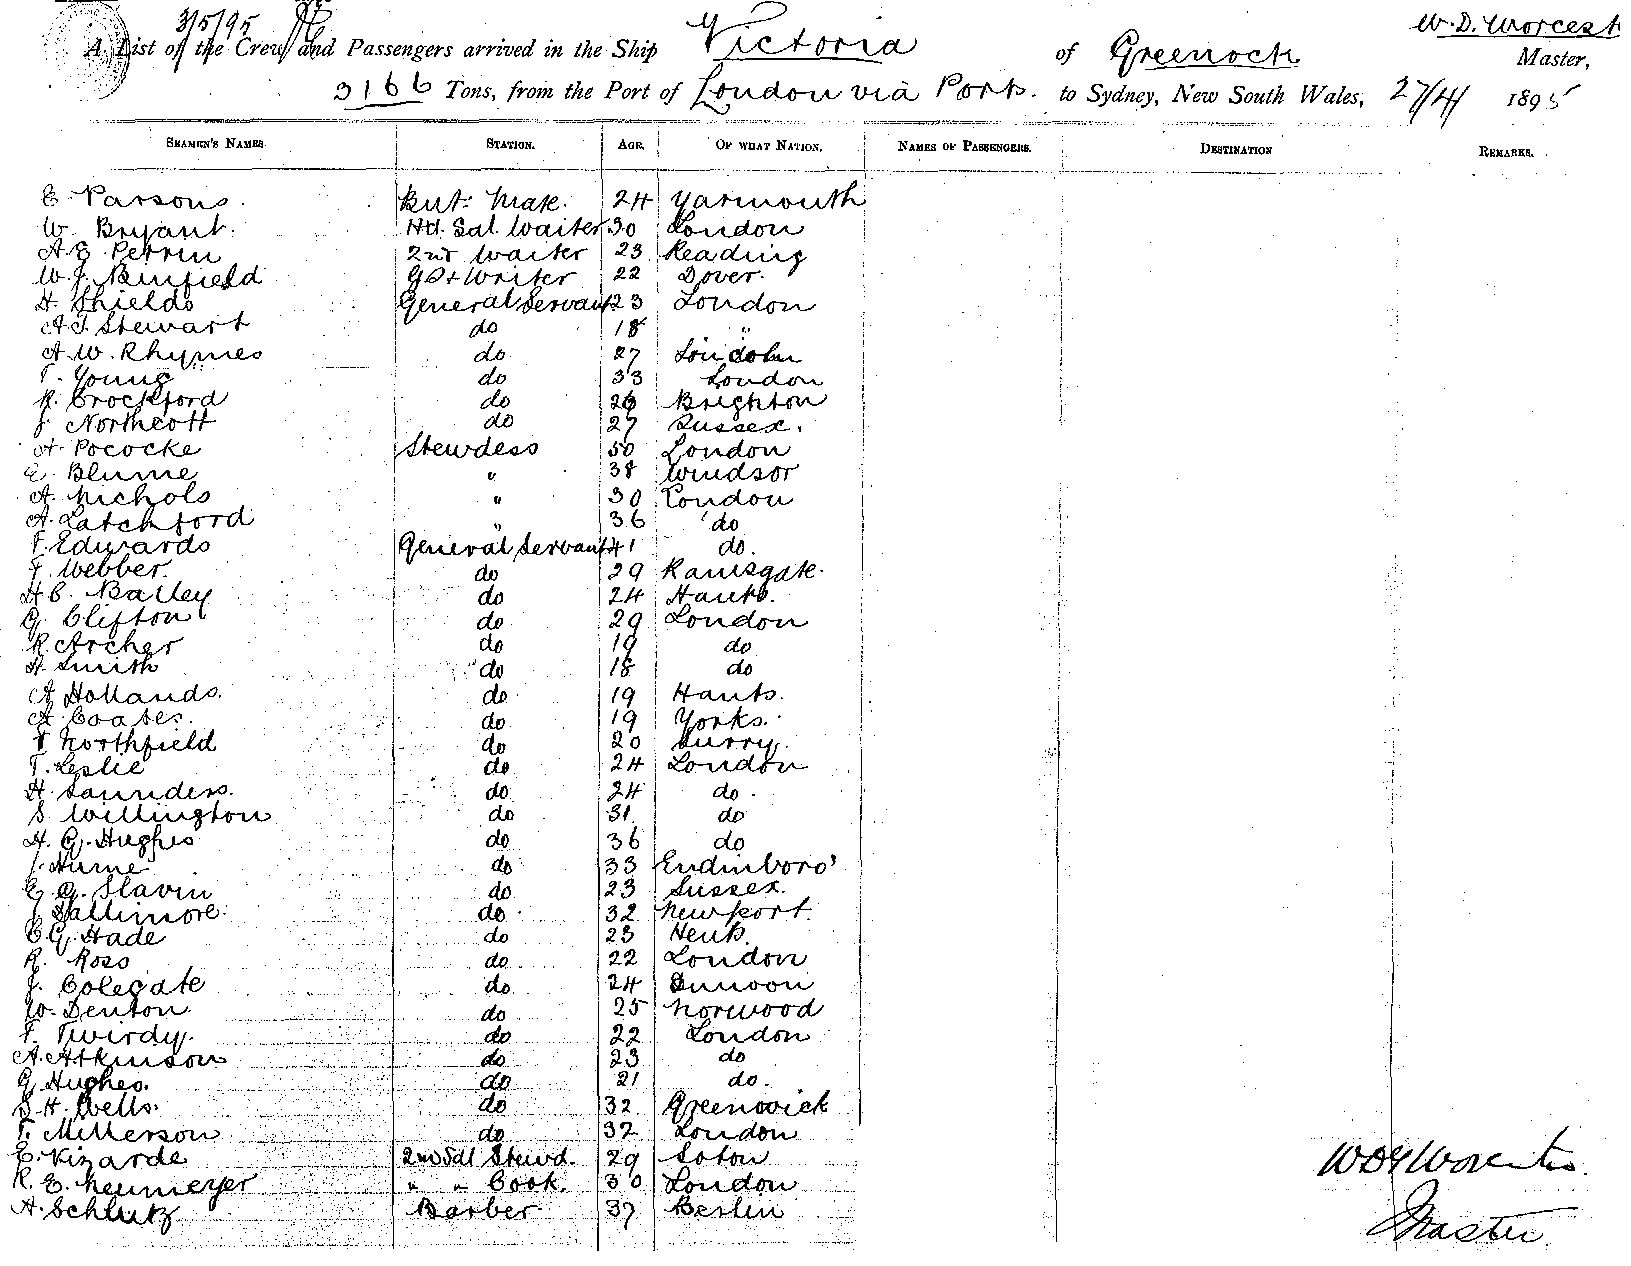 3/5/95
W. D. Worcest
A List of the Crew and Passengers arrived in the Ship Victoria of Greenock Master,
3166 Tons, from the Port of London via Ports. to Sydney, New South Wales, 27/4/ 1895
SEAMEN'S NAMES. STATION. AGE. OF WHAT NATION. NAMES OF PASSENGERS. DESTINATION REMARKS.
C. Parsons. But: Mate. 24 Yarmouth
W. Bryant. Hd. Sal. Waiter 30 London
A E Perrin 2nd Waiter 23 Reading
W. J. Binfield Writer 22 Dover.
H. Shields General Servant 23 London
A. J. Stewart do 18 "
A. W. Rhymes do 27 London
T. Young do 33 London
R. Crockford do 26 Brighton
J. Northcott do 27 Sussex.
A. Pococke Stewdess 50 London
E. Blume " 38 Windsor
A. Nichols " 30 London
A. Latchford " 36 do
F. Edwards General Servant 41 do.
F. Webber. do 29 Ramsgate.
H C. Bailey do 24 Hants.
G. Clifton do 29 London
R. Archer do 19 do
H. Smith do 18 do
A Hollands. do 19 Hants.
A. Coates. do 19 Yorks.
Northfield do 20 Surry.
T. Leslie do 24 London
H. Saunders. do 24 do.
S. Willington do 31 do
H. G. Hughes do 36 do
J. Hume do 33 Endinboro'
E. G. Slavin do 23 Sussex.
J. Tallimore. do. 32 Newport.
C. G. Hade do 23
R. Ross do 22 London
J. Colegate do. 24 Dunoon
W. Denton. do 25 Norwood
F. Twirdy. do 22 London
A. Atkinson do 23 do
G. Hughes. do 21 do.
S. H. Wells. do 32 Greenwick
T. Millerson do 32 London
E. Vizarde 2nd Sal Stewd. 29 Soton
R. E. Neumeyer " " Cook. 30 London
A. Schlutz Barber 37 Berlin
Master